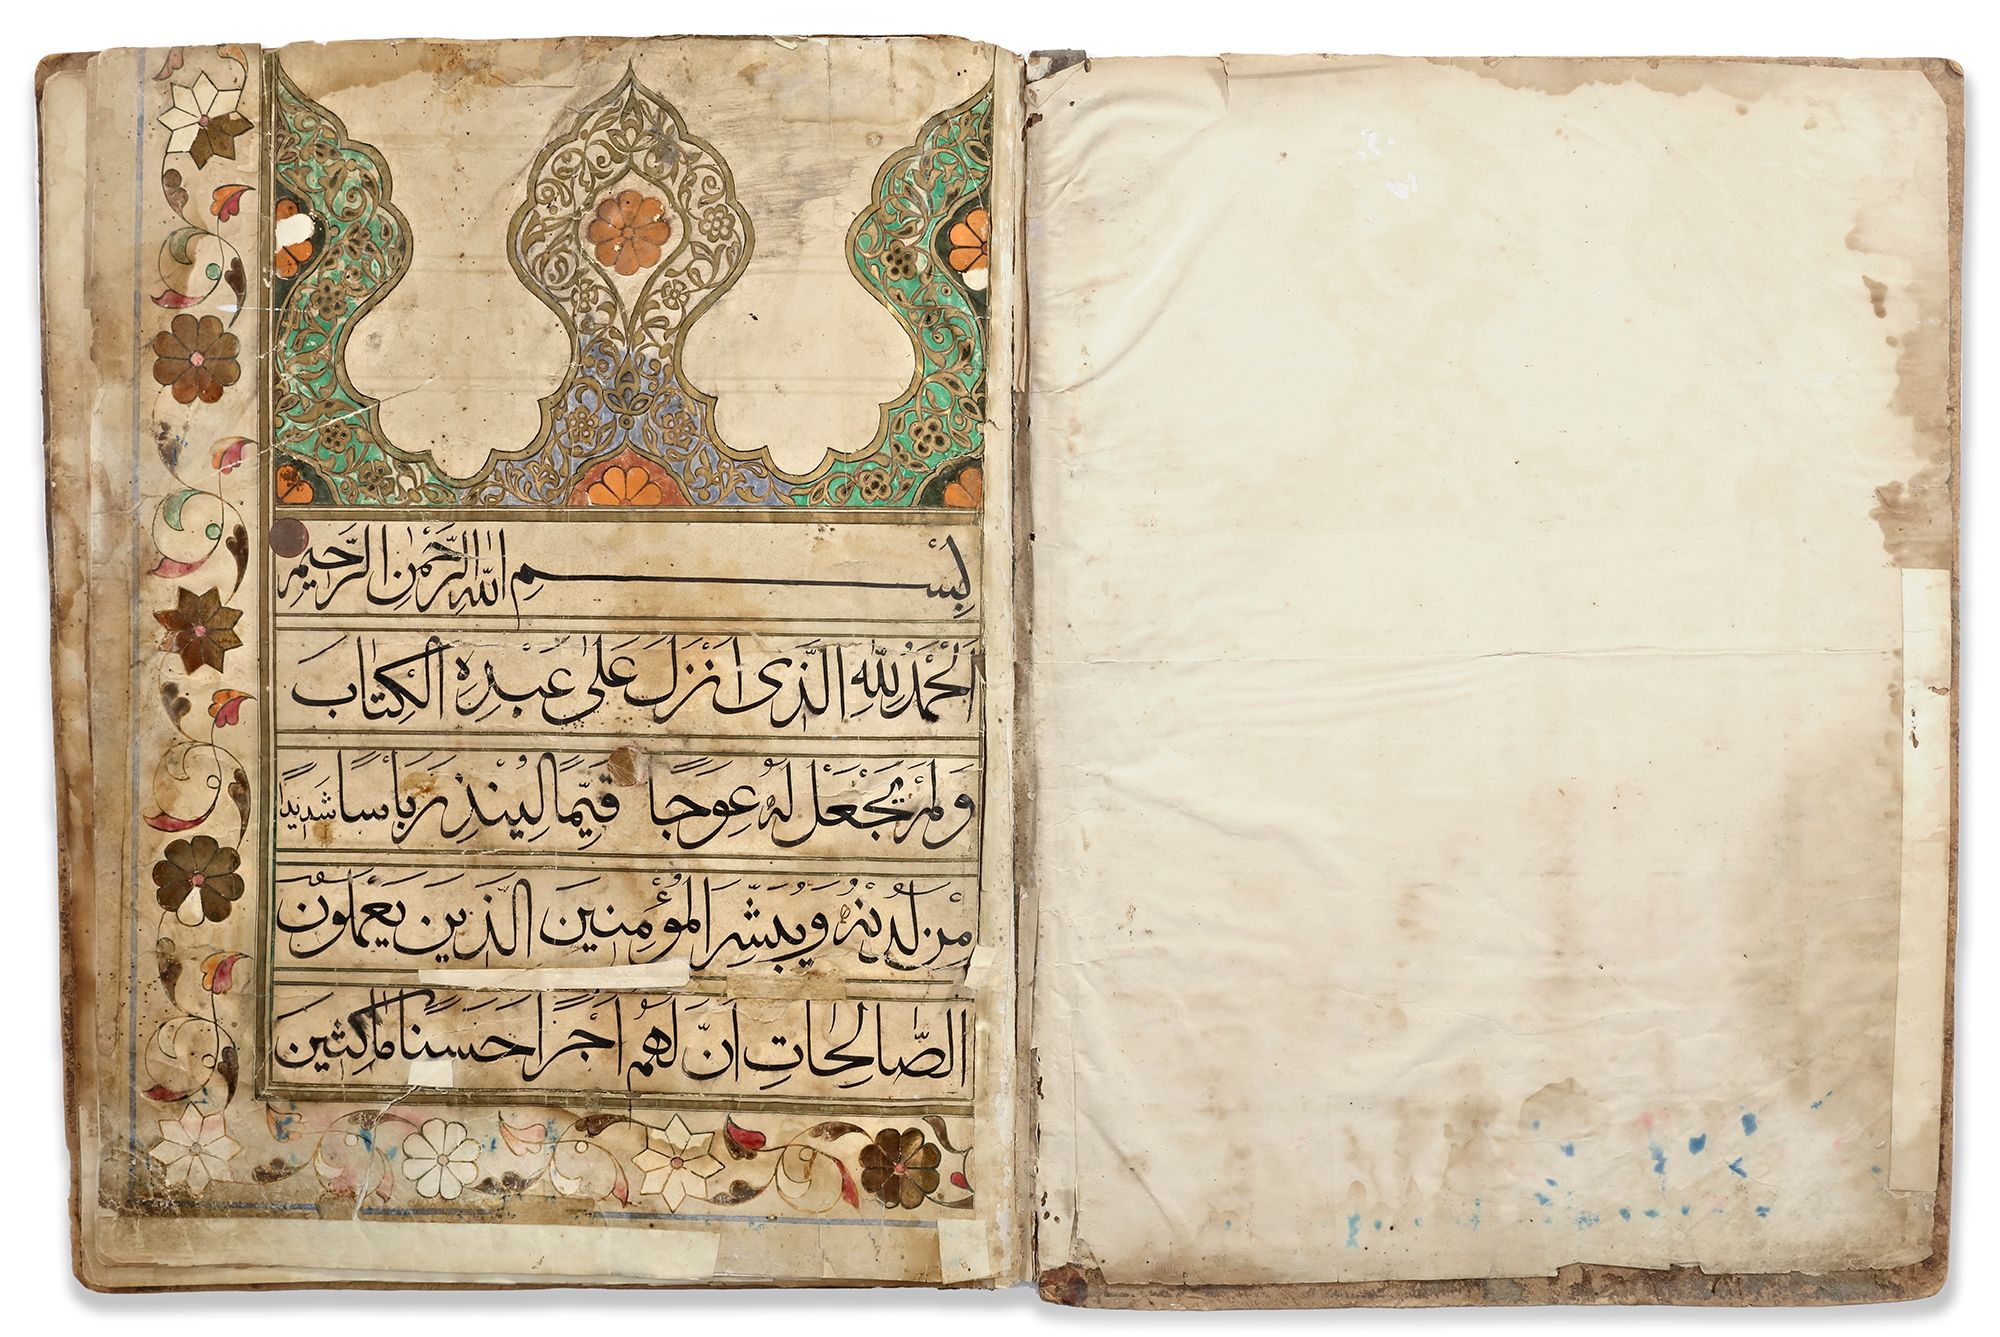 بِسْمِ اللّٰهِ الرَّحْمٰنِ الرَّحِيْمِ
اَلْحَمْدُ لِلّٰهِ الَّذِى اَنْزَلَ عَلٰى عَبْدِهِ الْكِتٰابَ
وَلَمْ يَجْعَلْ لَهُ عِوَجًا قَيِّمًا لِيُنْذِرَ بَأْسًا شَدِيدًا
مِنْ لَدُنْهُ وَيُبَشِّرَ الْمُؤْمِنِينَ الَّذِينَ يَعْمَلُونَ
الصَّالِحَاتِ اَنَّ لَهُمْ اَجْرًا حَسَنًا مٰاكِثِينَ